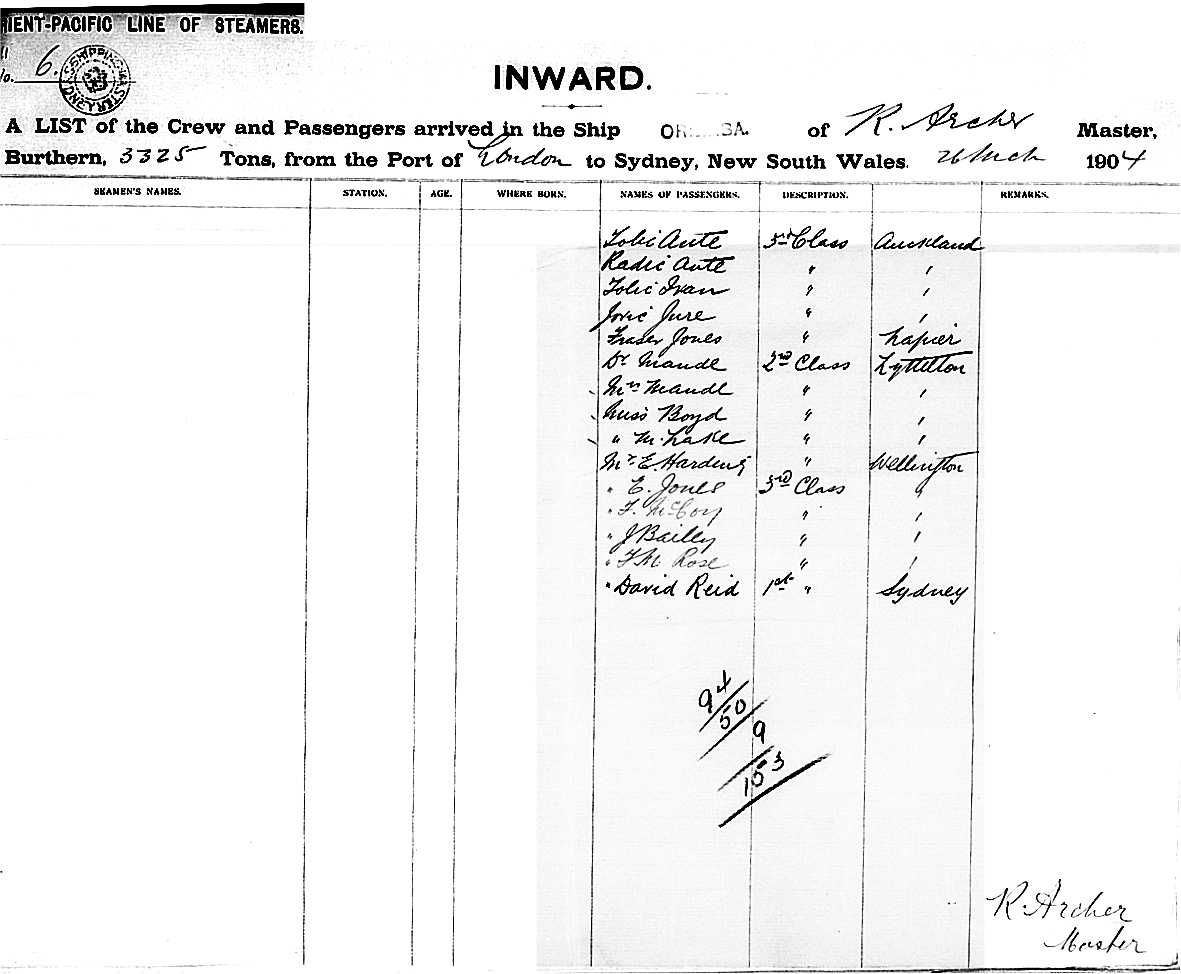 IENT-PACIFIC LINE OF STEAMERS.
6.
INWARD.
A LIST of the Crew and Passengers arrived in the Ship OR SA. of R. Archer Master,
Burthern, 3325 Tons, from the Port of London to Sydney, New South Wales. 1904
SEAMEN'S NAMES. STATION. AGE. WHERE BORN. NAMES OF PASSENGERS. DESCRIPTION. REMARKS.
Tolic Ante 3rd Class Auckland
Radic Ante " "
Tolic Ivan " "
Jovic Jure " "
Fraser Jones " Napier
Dr Mandl 2nd Class Lyttelton
Mrs Mandl " "
Miss Boyd " "
" M. Lake " "
Mr E. Harding " Wellington
" E. Jones 3rd Class "
" F. McCoy " "
" J Bailly " "
" F M Rose " "
" David Reid 1st " Sydney
94
50
9
153
R. Archer
Master